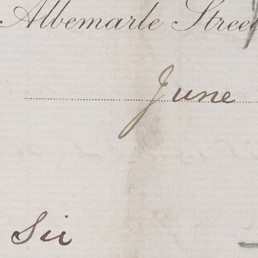 Albemarle Street
June
Sir